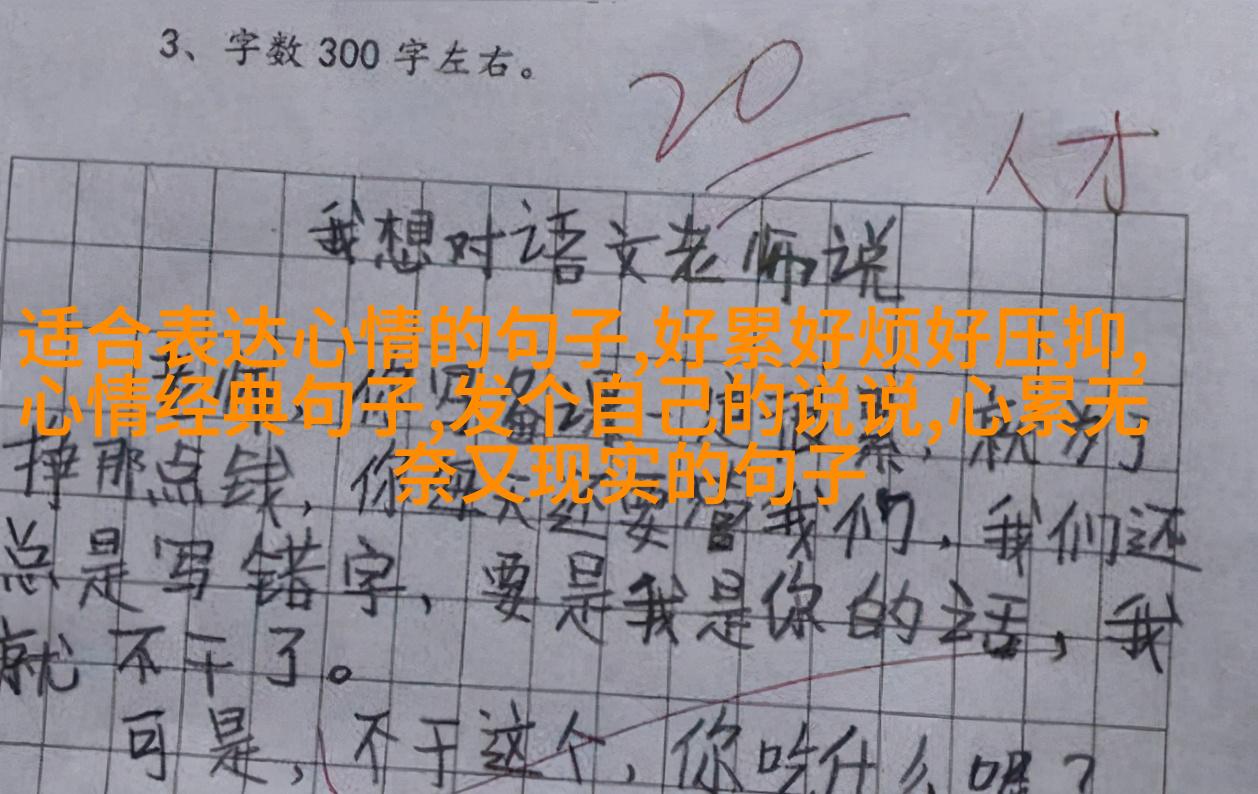 3、字数 300 字左右。
20
人才
我想对语文老师说
适合表达心情的句子,好累好烦好压抑,
心情经典句子,发个自己的说说,心累无
奈又现实的句子
老师,你
就为了
挣那点钱,你每天还要管我们,我们还
总是写错字,要是我是你的话,我
就不干了。
可是,不干这个,你吃什么呢?